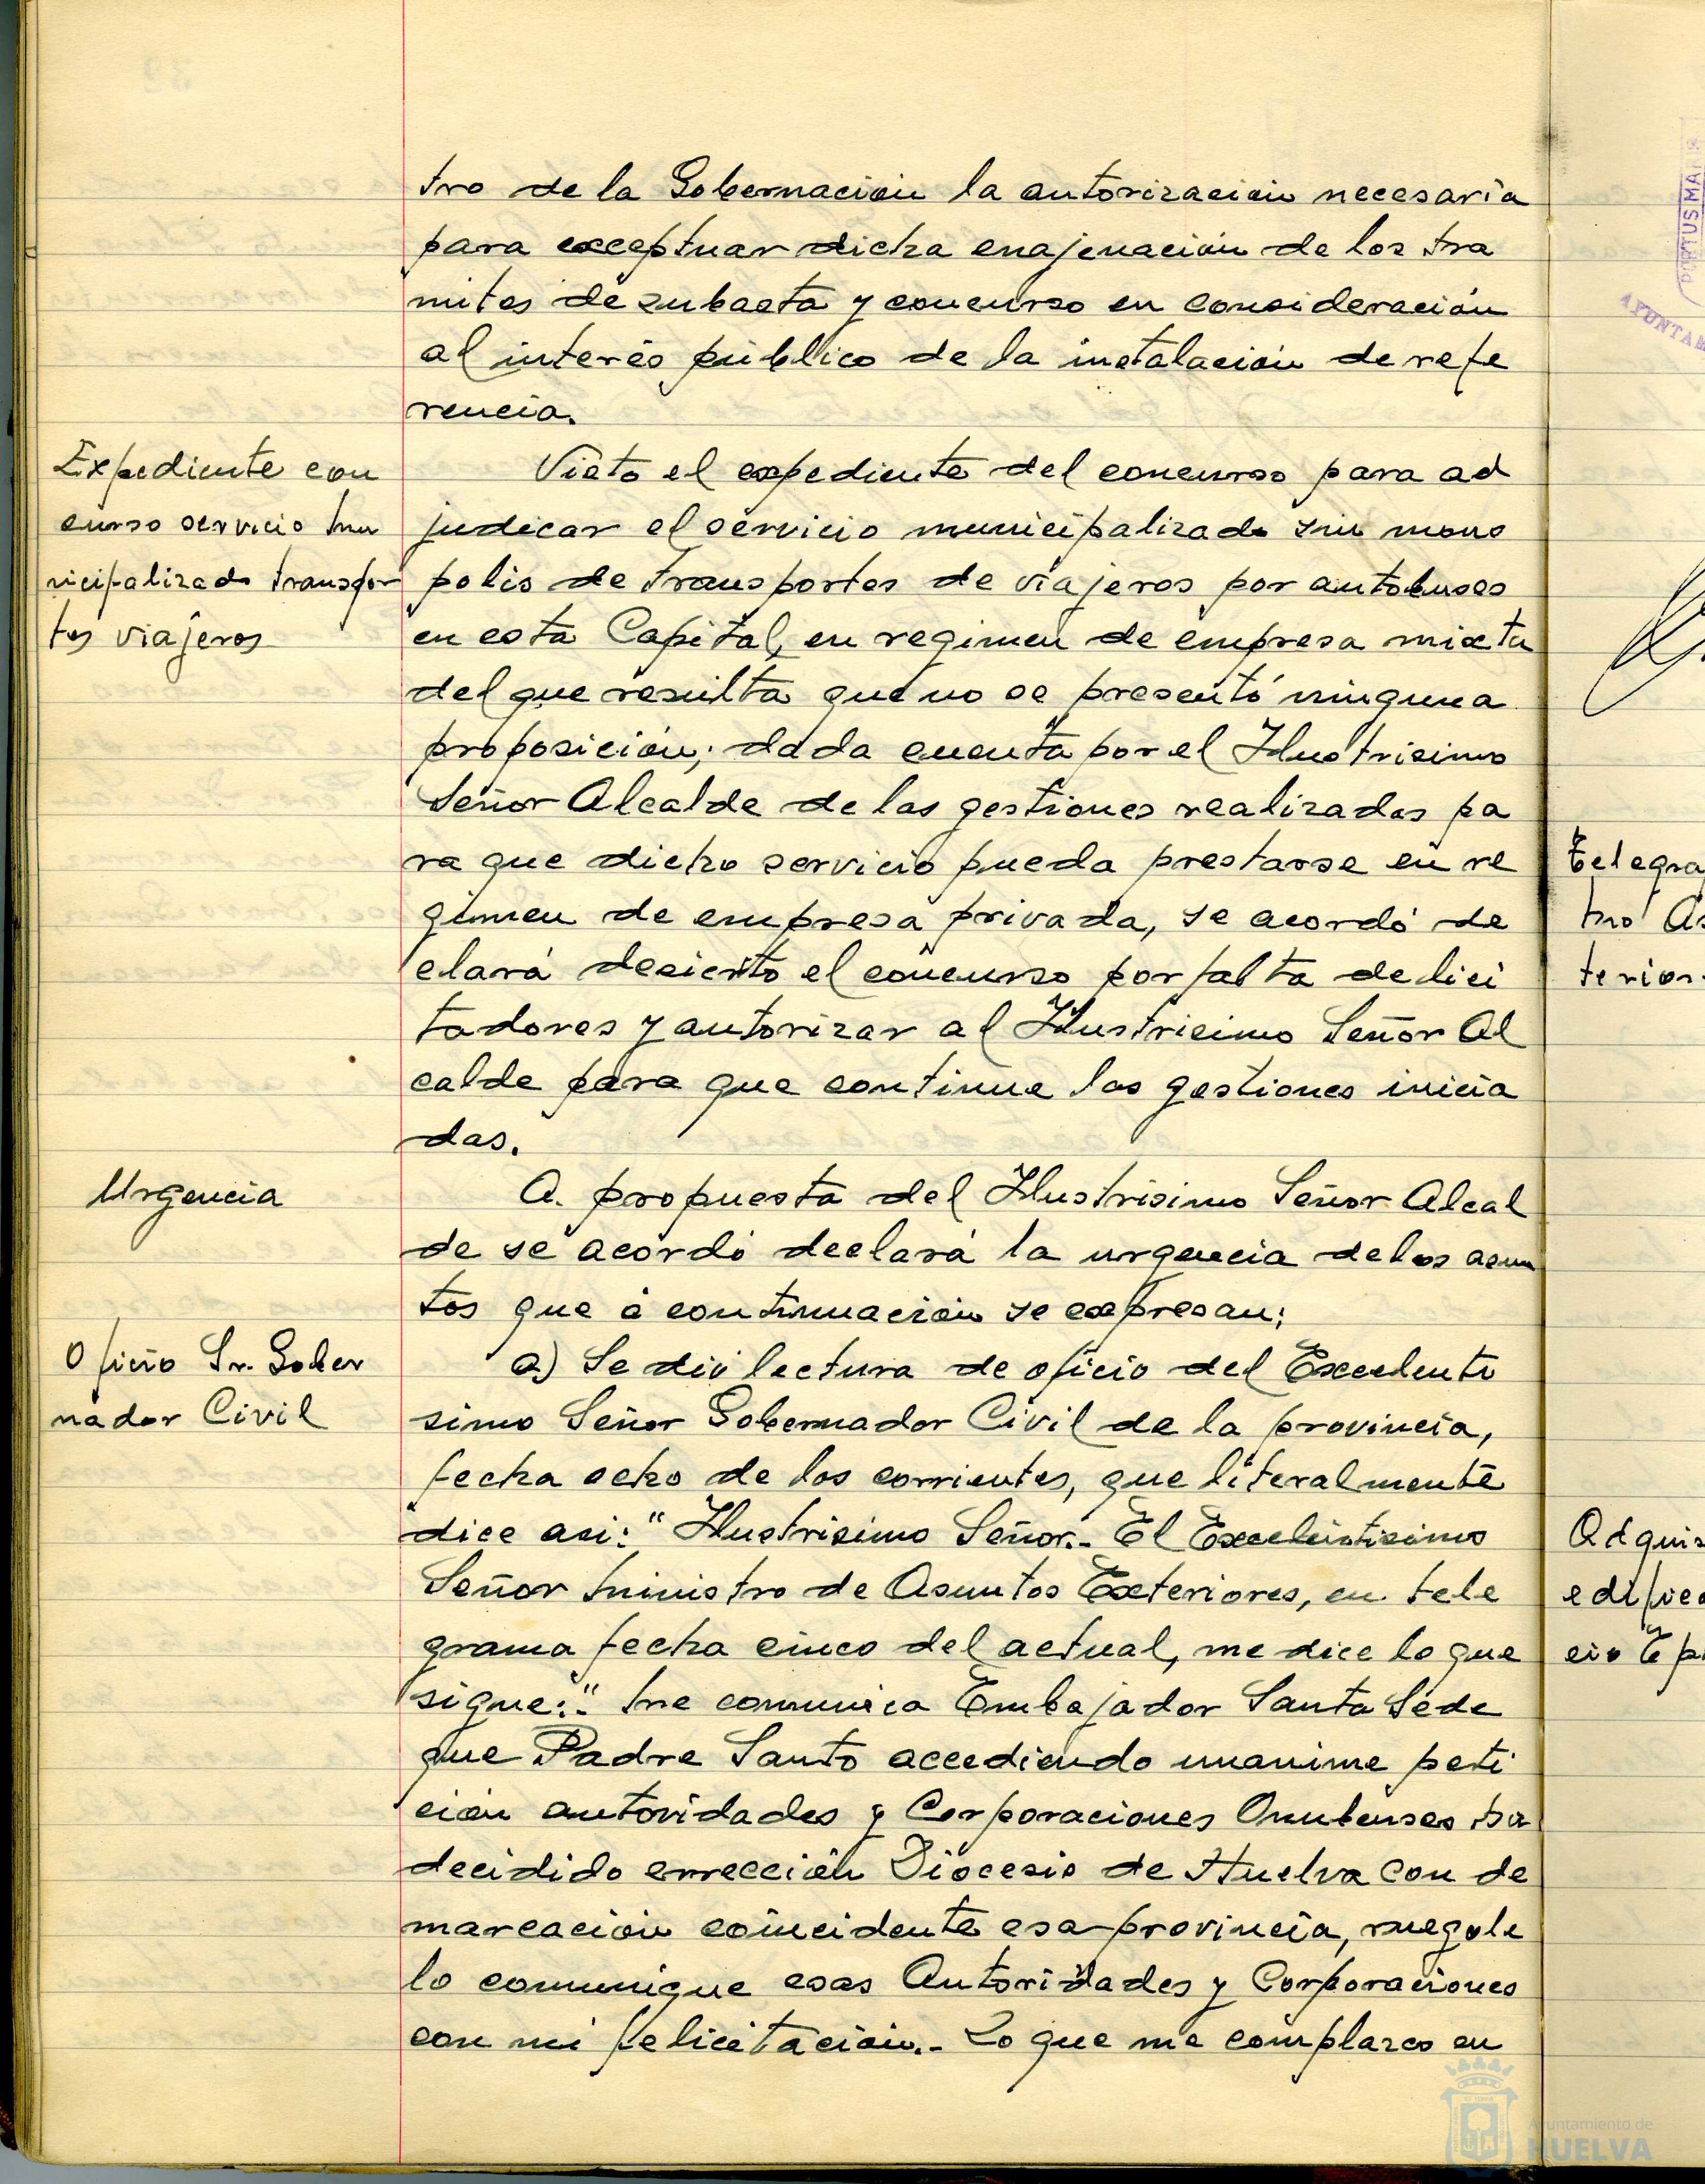 tro de la Gobernación la autorización necesaria
para exceptuar dicha enajenación de los tra
mites de subasta y concurso en consideración
al interés público de la instalación de refe
rencia.
Expediente con
curso servicio mu
nicipalizado transpor
tes viajeros
Visto el expediente del concurso para ad
judicar el servicio municipalizado sin mono
polio de transportes de viajeros por autobuses
en esta Capital, en regimen de empresa mixta
del que resulta que no se presentó ninguna
proposición; dada cuenta por el Ilustrisimo
Señor Alcalde de las gestiones realizadas pa
ra que dicho servicio pueda prestarse en re
gimen de empresa privada, se acordó de
clará desierto el concurso por falta de lici
tadores y autorizar al Ilustrisimo Señor Al
calde para que continue las gestiones inicia
das.
Urgencia
A propuesta del Ilustrisimo Señor Alcal
de se acordó declará la urgencia de los asun
tos que á continuación se expresan:
Oficio Sr. Gober
nador Civil
a) Se dió lectura de oficio del Excelenti
simo Señor Gobernador Civil de la provincia,
fecha ocho de los corrientes, que literalmente
dice asi: "Ilustrisimo Señor.- El Excelentisimo
Señor Ministro de Asuntos Exteriores, en tele
grama fecha cinco del actual, me dice lo que
sigue:." Me comunica Embajador Santa Sede
que Padre Santo accediendo unanime peti
ción autoridades y Corporaciones Onubenses ha
decidido errección Diocesis de Huelva con de
marcación coincidente esa provincia, ruegole
lo comunique esas Autoridades y Corporaciones
con mi felicitación.- Lo que me complazco en
PORTUS MA
AYUNTAM
telegra
mo As
terior
Adquis
edific
cio Ep
Ayuntamiento de
HUELVA